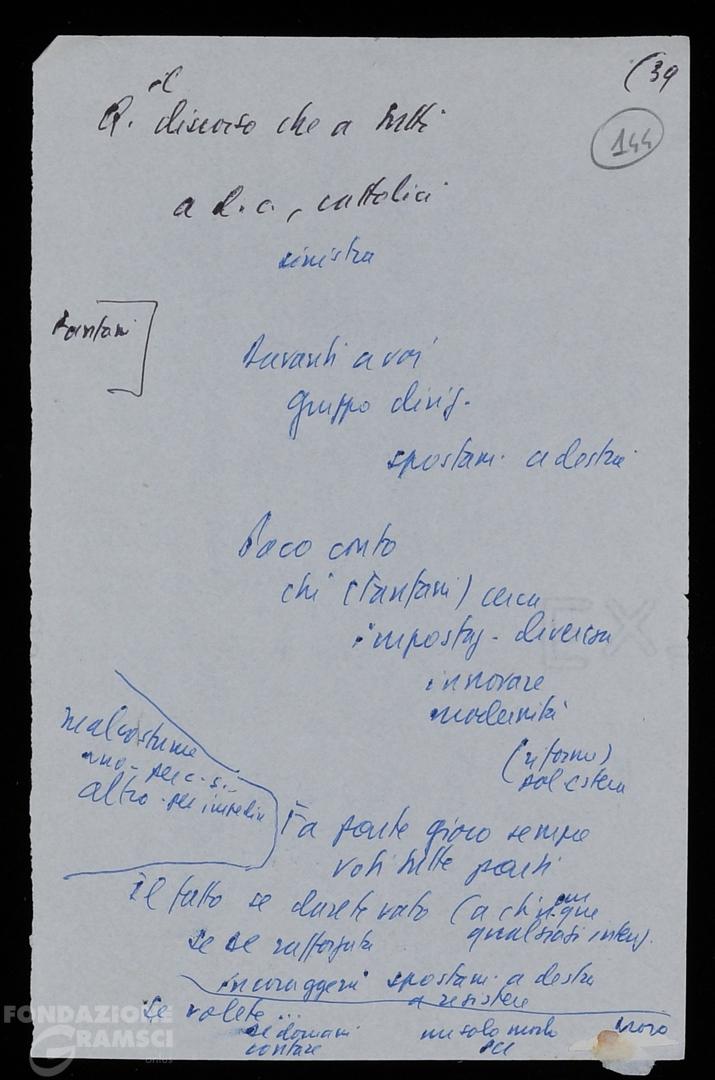 (39
144
il
Q. discorso che a tutti
a d.c., cattolici
sinistra
Fanfani
Davanti a voi
gruppo dirig.
spostam. a destra
Poco conto
chi (Fanfani) cerca
impostaz. diversa
innovare
modernità
(riforme)
pol estera
malcostume
uno. per c. s.
altro. per impedire
Fa parte gioco sempre
voti tutte parti
Il fatto se darete voto (a chiunque
qualsiasi intenz.
se se rafforzata
incoraggerà spostam. a destra
a resistere
Se volete...
se domani
contare
un solo modo
PCI
Moro
FONDAZIONE
GRAMSCI
onlus